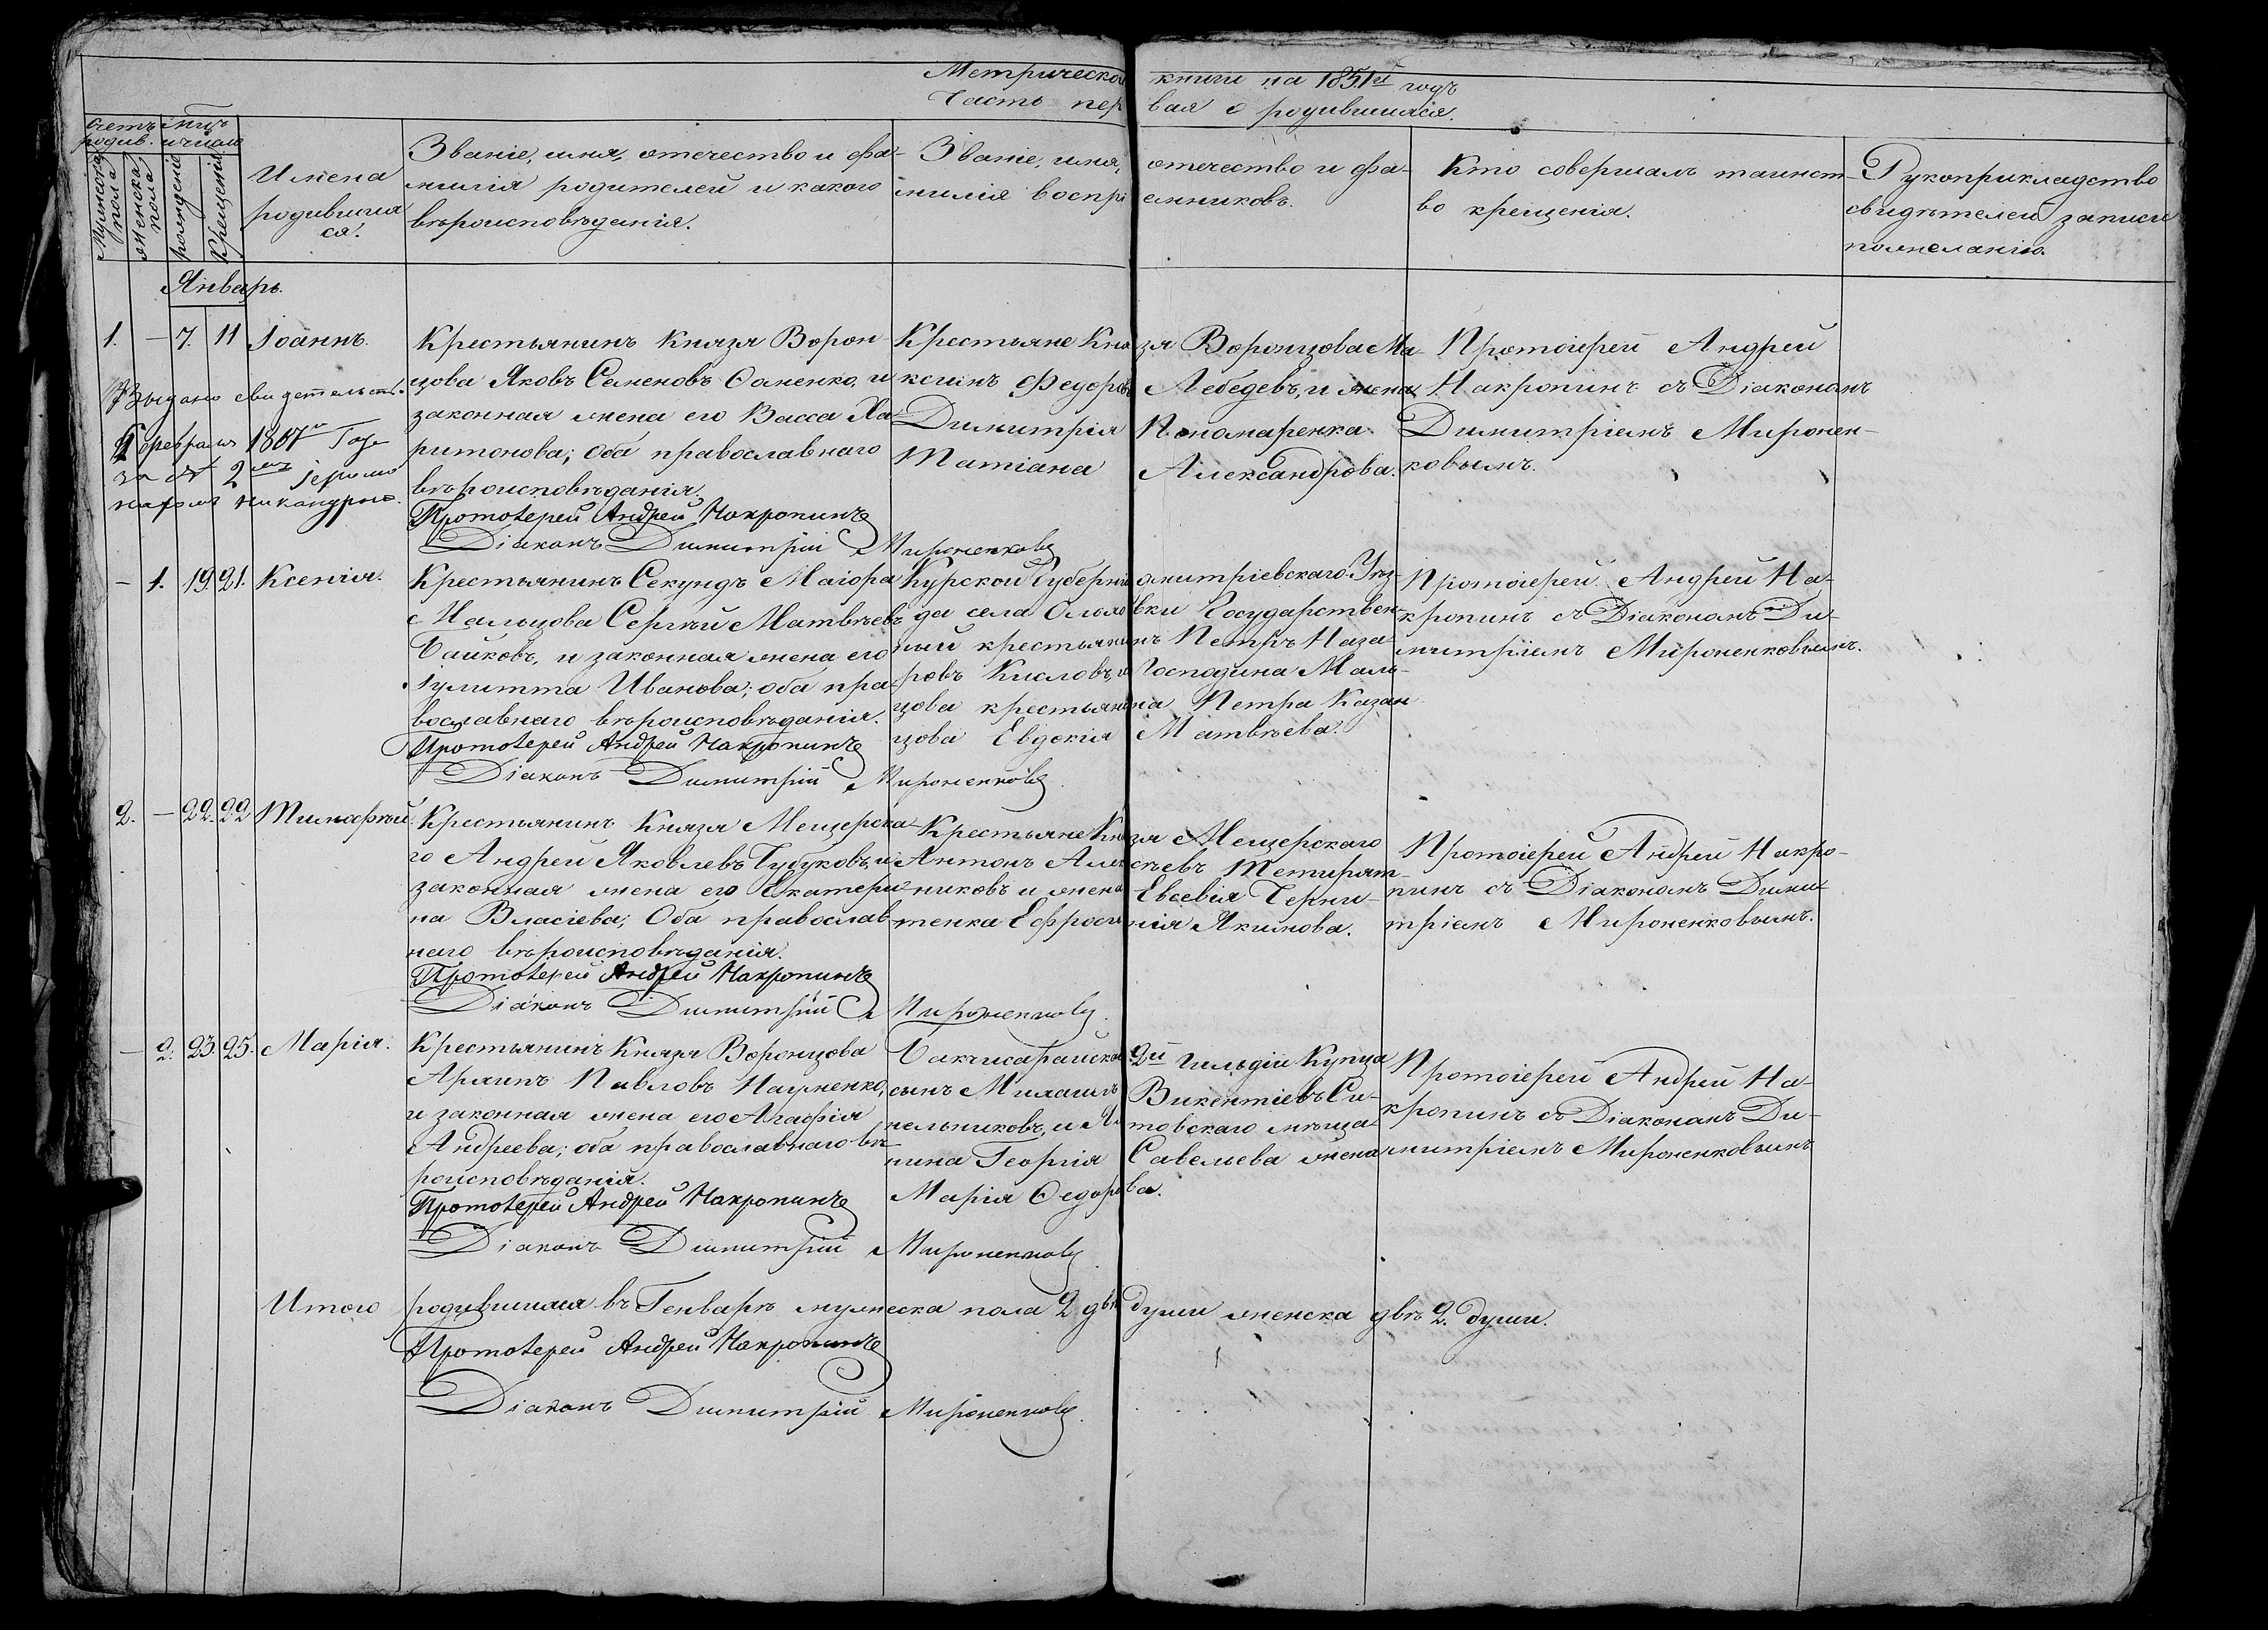 Метрической книги на 1851й годъ
Часть первая о родившихся.
Счетъ родив.
Мцъ и число
Мужеска пола
Женска пола
рожденія
Крещенія
Имена родившихся.
Званіе, имя, отечество и фа-
милія родителей и какого
вѣроисповѣданія.
Званіе, имя, отечество и фа-
милія воспріемниковъ.
Кто совершалъ таинст-
во крещенія.
Рукоприкладство
свидѣтелей записи
по желанію.
Январь.
1. — 7. 11 Іоаннъ.
Выдано свидетельст.
Февраля 1867го Года
за № 2мъ Іеромо
нахомъ Никандромъ.
Крестьянинъ Князя Ворон-
цова Яковъ Семеновъ Ѳоменко, и
законная жена его Васса Ха-
ритонова; оба православнаго
вѣроисповѣданія.
Протоіерей Андрей Накропинъ
Діаконъ Димитрій Мироненковъ
Крестьяне Князя Воронцова Ма-
ксимъ Федоровъ Лебедевъ, и жена
Димитрія Пономаренка
Татіана Александрова.
Протоіерей Андрей
Накропинъ съ Діакономъ
Димитріемъ Миронен-
ковымъ.
— 1. 19. 21. Ксенія.
Крестьянинъ Секундъ Маіора
Мальцова Сергѣй Матвѣевъ
Байковъ, и законная жена его
Іулитта Иванова; оба пра-
вославнаго вѣроисповѣданія.
Протоіерей Андрей Накропинъ
Діаконъ Димитрій Мироненковъ
Курской Губерніи Дмитріевскаго Уѣз-
да села Ольховки Государствен-
ный крестьянинъ Петръ Наза-
ровъ Кисловъ, и Господина Маль-
цова крестьянина Петра Казан
цова Евдокія Матвѣева.
Протоіерей Андрей На-
кропинъ съ Діакономъ Ди-
митріемъ Мироненковымъ.
2. — 22. 22 Тимофѣй.
Крестьянинъ Князя Мещерска-
го Андрей Яковлевъ Губуковъ, и
законная жена его Екатери-
на Власіева; Оба православ-
наго вѣроисповѣданія.
Протоіерей Андрей Накропинъ
Діаконъ Димитрій Мироненковъ
Крестьяне Князя Мещерскаго
Антонъ Алексѣевъ Тетерят-
никовъ и жена Евсевія Черни-
тенка Ефросинія Якимова.
Протоіерей Андрей Накро-
пинъ съ Діакономъ Дими-
тріемъ Мироненковымъ.
— 2. 23. 25. Марія.
Крестьянинъ Князя Воронцова
Павловъ Науменко,
и законная жена его Агафія
Андреева; оба православнаго вѣ-
роисповѣданія.
Протоіерей Андрей Накропинъ
Діаконъ Димитрій Мироненковъ
Бакчисарайскаго 2й гильдіи Купца
сынъ Михаилъ Викентіевъ Си-
нельниковъ, и мѣща-
нина Георгія Савельева жена
Марія Ѳедорова.
Протоіерей Андрей На-
кропинъ съ Діакономъ Ди-
митріемъ Мироненковымъ
Итого родившихся въ Генварѣ мужеска пола 2 двѣ души женска двѣ 2. души.
Протоіерей Андрей Накропинъ
Діаконъ Димитрій Мироненковъ.